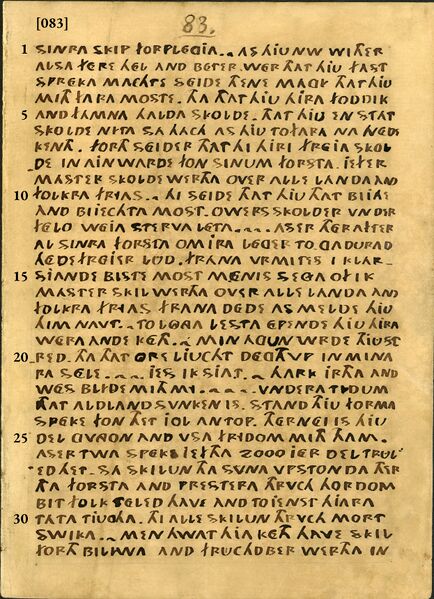 [083]
83.
1 SINRA SKIP FORPLEGIA.. AS HIU NW WITHER
ALSA FERE HEL AND BETER. WER THAT HIU FAST
SPREKA MACHTE SEIDE THENE MAGY THAT HIU
MITH FARA MOSTE. THA THAT HIU HIRA FODDIK
5 AND FAMNA HALDA SKOLDE. THAT HIU EN STAT
SKOLDE NITA SA HACH AS HIU TOFARA NA NEDE
KENTH. FORTH SEIDER THAT HI HIRI FREIA SKOL
DE IN AINWARDE FON SINUM FORSTA. IEFTER
MASTER SKOLDE WERTHA OVER ALLE LANDA AND
10 FOLKRA FRYAS.. HI SEIDE THAT HIU THAT BIJHE
AND BIJECHTA MOST. OWERS SKOLDER VNDER
FELO WEIA STERVA LETA... ASER THERAFTER
AL SINRA FORSTA OM IRA LEGER TO GADURAD
HEDE FREIER LUD. FRANA VRMITES I KLAR-
15 SIANDE BISTE MOST M ENIS SEGA OF IK
MASTER SKIL WERTHA OVER ALLE LANDA AND
FOLKRA FRYAS. FRANA DEDE AS MELDE HIU
HIM NAVT.. TO LONGA LESTA EPENDE HIU HIRA
WERA ANDE KETH.. MIN HAUN WRDE THIUST
20 RED. THA THAT ORE LIUCHT DEGTH VP IN MINA
RA SELE.... IES IK SIAT.. HARK IRTHA AND
WES BLYDE MITH MY.... VNDERA TYDUM
THAT ALDLAND SVNKEN IS. STAND THIU FORMA
SPEKE FON THET JOL AN TOP. THERNEI IS HIU
25 DEL GVNGON AND VSA FRYDOM MITH THAM.
ASER TWA SPEKE IEFTHA 2000 IER DEL TRUL
ED HET. SA SKILUN THA SVNA VPSTONDA THER
THA FORSTA AND PRESTERA THRVCH HORDOM
BIT FOLK TELED HAVE AND TOIENST HIARA
30 TATA TIUGHA. THI ALLE SKILUN THRVCH MORT
SWIKA.. MEN HWAT HIA KETH HAVE SKIL
FORTH BILIWA AND FRUCHDBER WERTHA IN